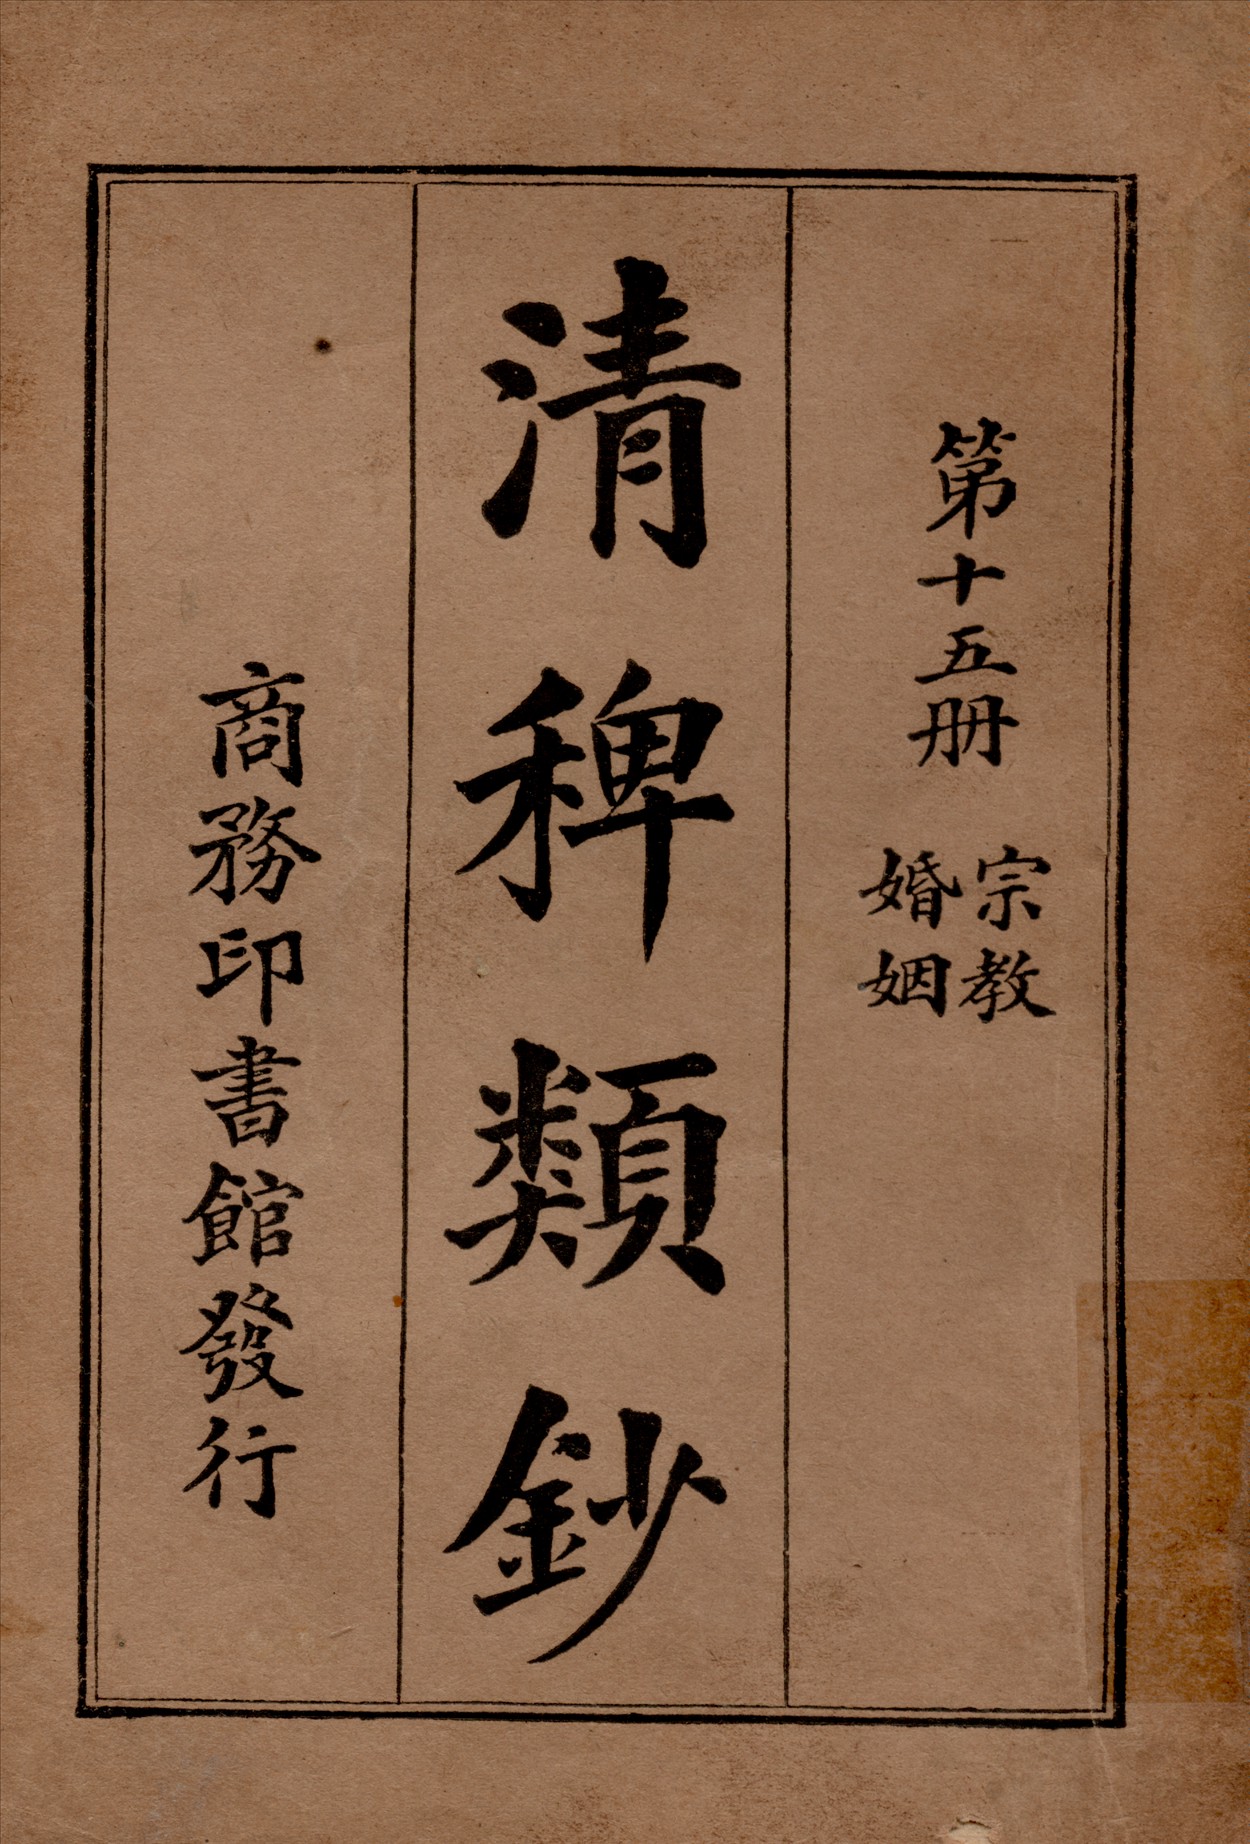 第十五册
宗教
婚姻
清稗類鈔
商務印書館發行